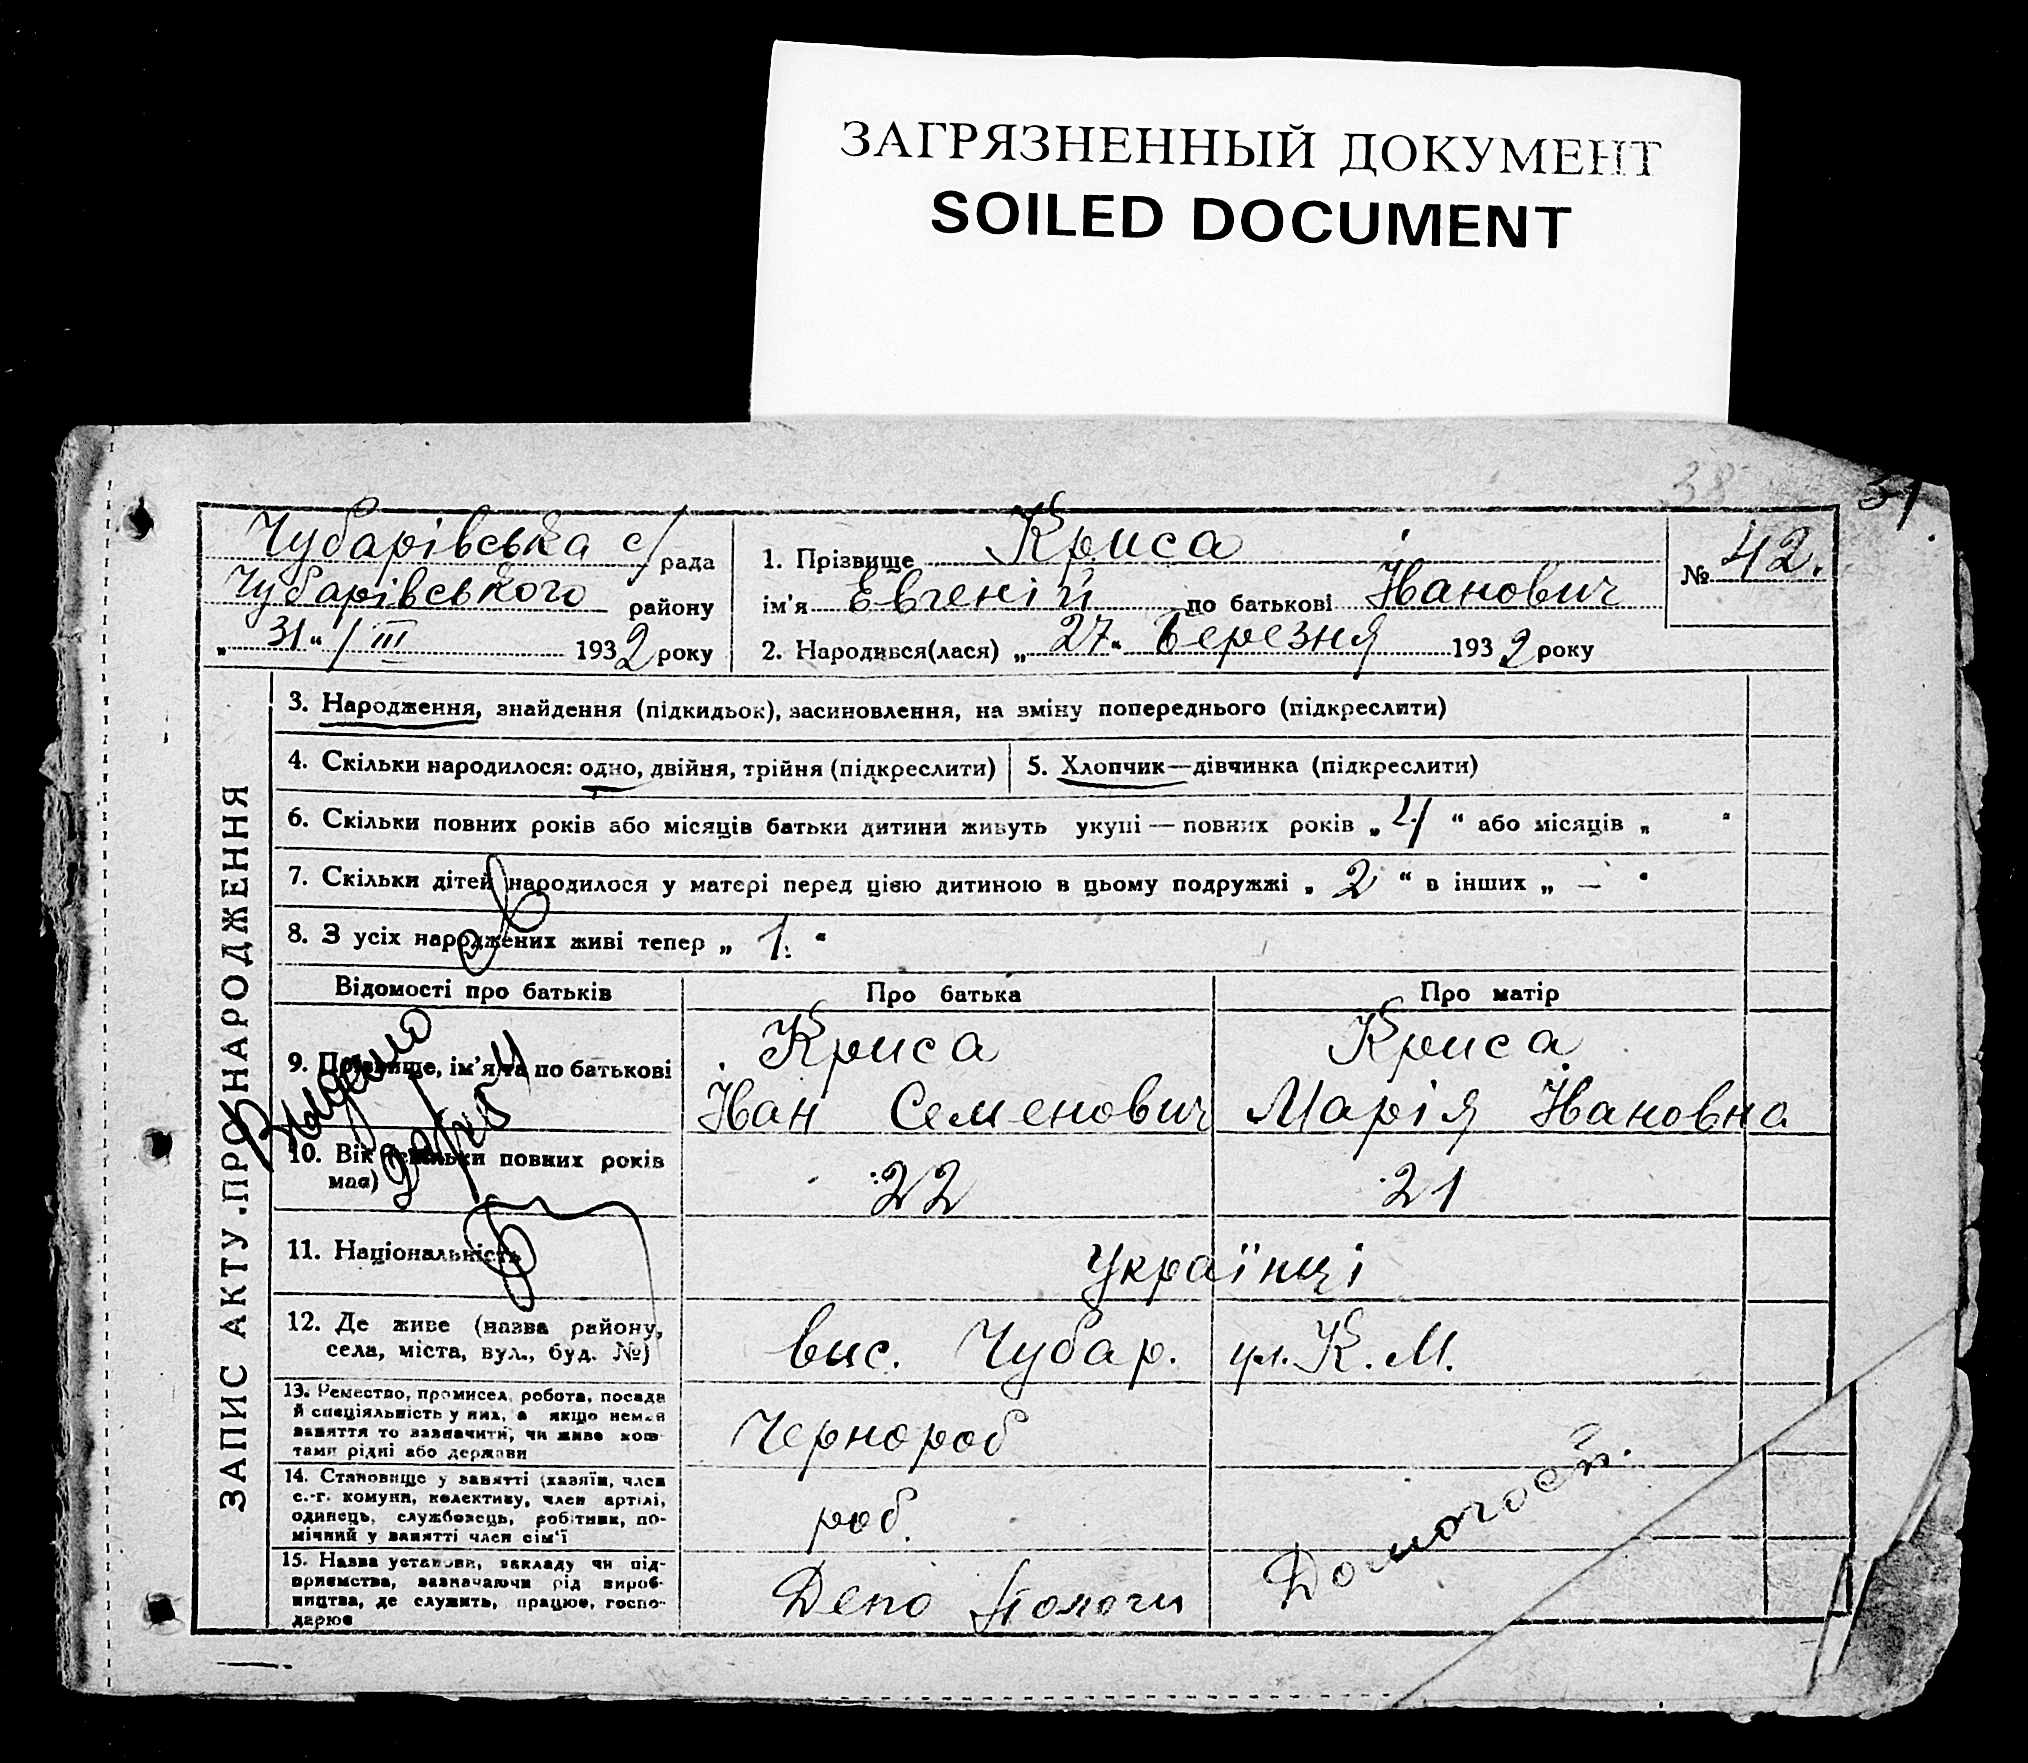 ЗАГРЯЗНЕННЫЙ ДОКУМЕНТ
SOILED DOCUMENT
38
Чубарівська с/рада
Чубарівського району
„31“/III 1932 року
1. Прізвище Криса
ім'я Евгеній по батькові Іванович
2. Народився(лася) „27“ березня 1932 року
№ 42.
ЗАПИС АКТУ ПРО НАРОДЖЕННЯ
3. Народження, знайдення (підкидьок), засиновлення, на зміну попереднього (підкреслити)
4. Скільки народилося: одно, двійня, трійня (підкреслити)
5. Хлопчик—дівчинка (підкреслити)
6. Скільки повних років або місяців батьки дитини живуть укупі — повних років „4“ або місяців „ “
7. Скільки дітей народилося у матері перед цією дитиною в цьому подружжі „2“ в інших „ — “
8. З усіх народжених живі тепер „1.“
Відомості про батьків
Про батька
Про матір
9. Прізвище, ім'я та по батькові
Криса
Іван Семенович
Криса
Марія Івановна
Видано
10. Вік (скільки повних років
має)
22
21
11. Національність
Українці
12. Де живе (назва району,
села, міста, вул., буд. №)
вис. Чубар. ул. К. М.
13. Ремество, промисел, робота, посада
й спеціяльність у них, а якщо немає
заняття то зазначити, чи живе кош-
тами рідні або держави
Чернороб
14. Становище у занятті (хазяїн, член
с.-г. комуни, колективу, член артілі,
одинець, службовець, робітник, по-
мічний у занятті член сім'ї
роб.
15. Назва установи, закладу чи під-
приємства, зазначаючи рід вироб-
ництва, де служить, працює, госпо-
дарює
Депо Пологи
Домогосп.